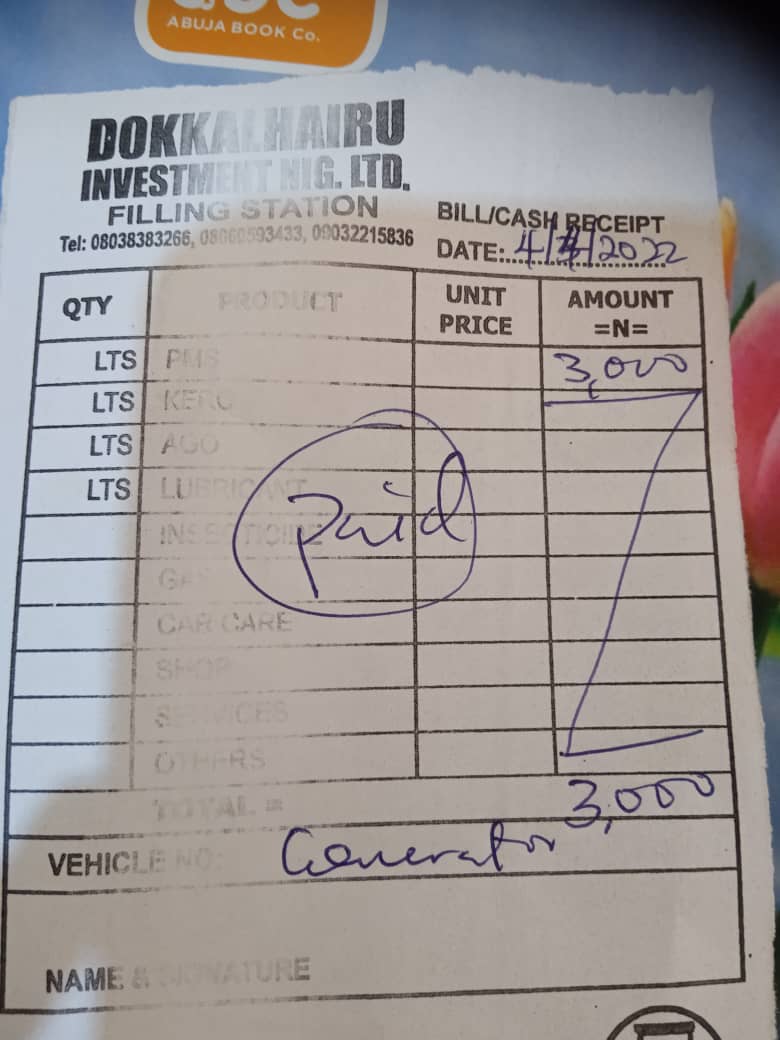 ABUJA BOOK Co.
DOKKALHAIRU
INVESTMENT NIG. LTD.
FILLING STATION
Tel: 08038383266, 09032215836
BILL/CASH RECEIPT
DATE:..4/4/2022
QTY PRODUCT UNIT PRICE AMOUNT =N=
LTS PMS 3,000
LTS KERO
LTS AGO
LTS LUBRICANT
Paid
INSECTICIDE
GAS
CAR CARE
SHOP
SERVICES
OTHERS
TOTAL = 3,000
VEHICLE NO: Generator
NAME & SIGNATURE